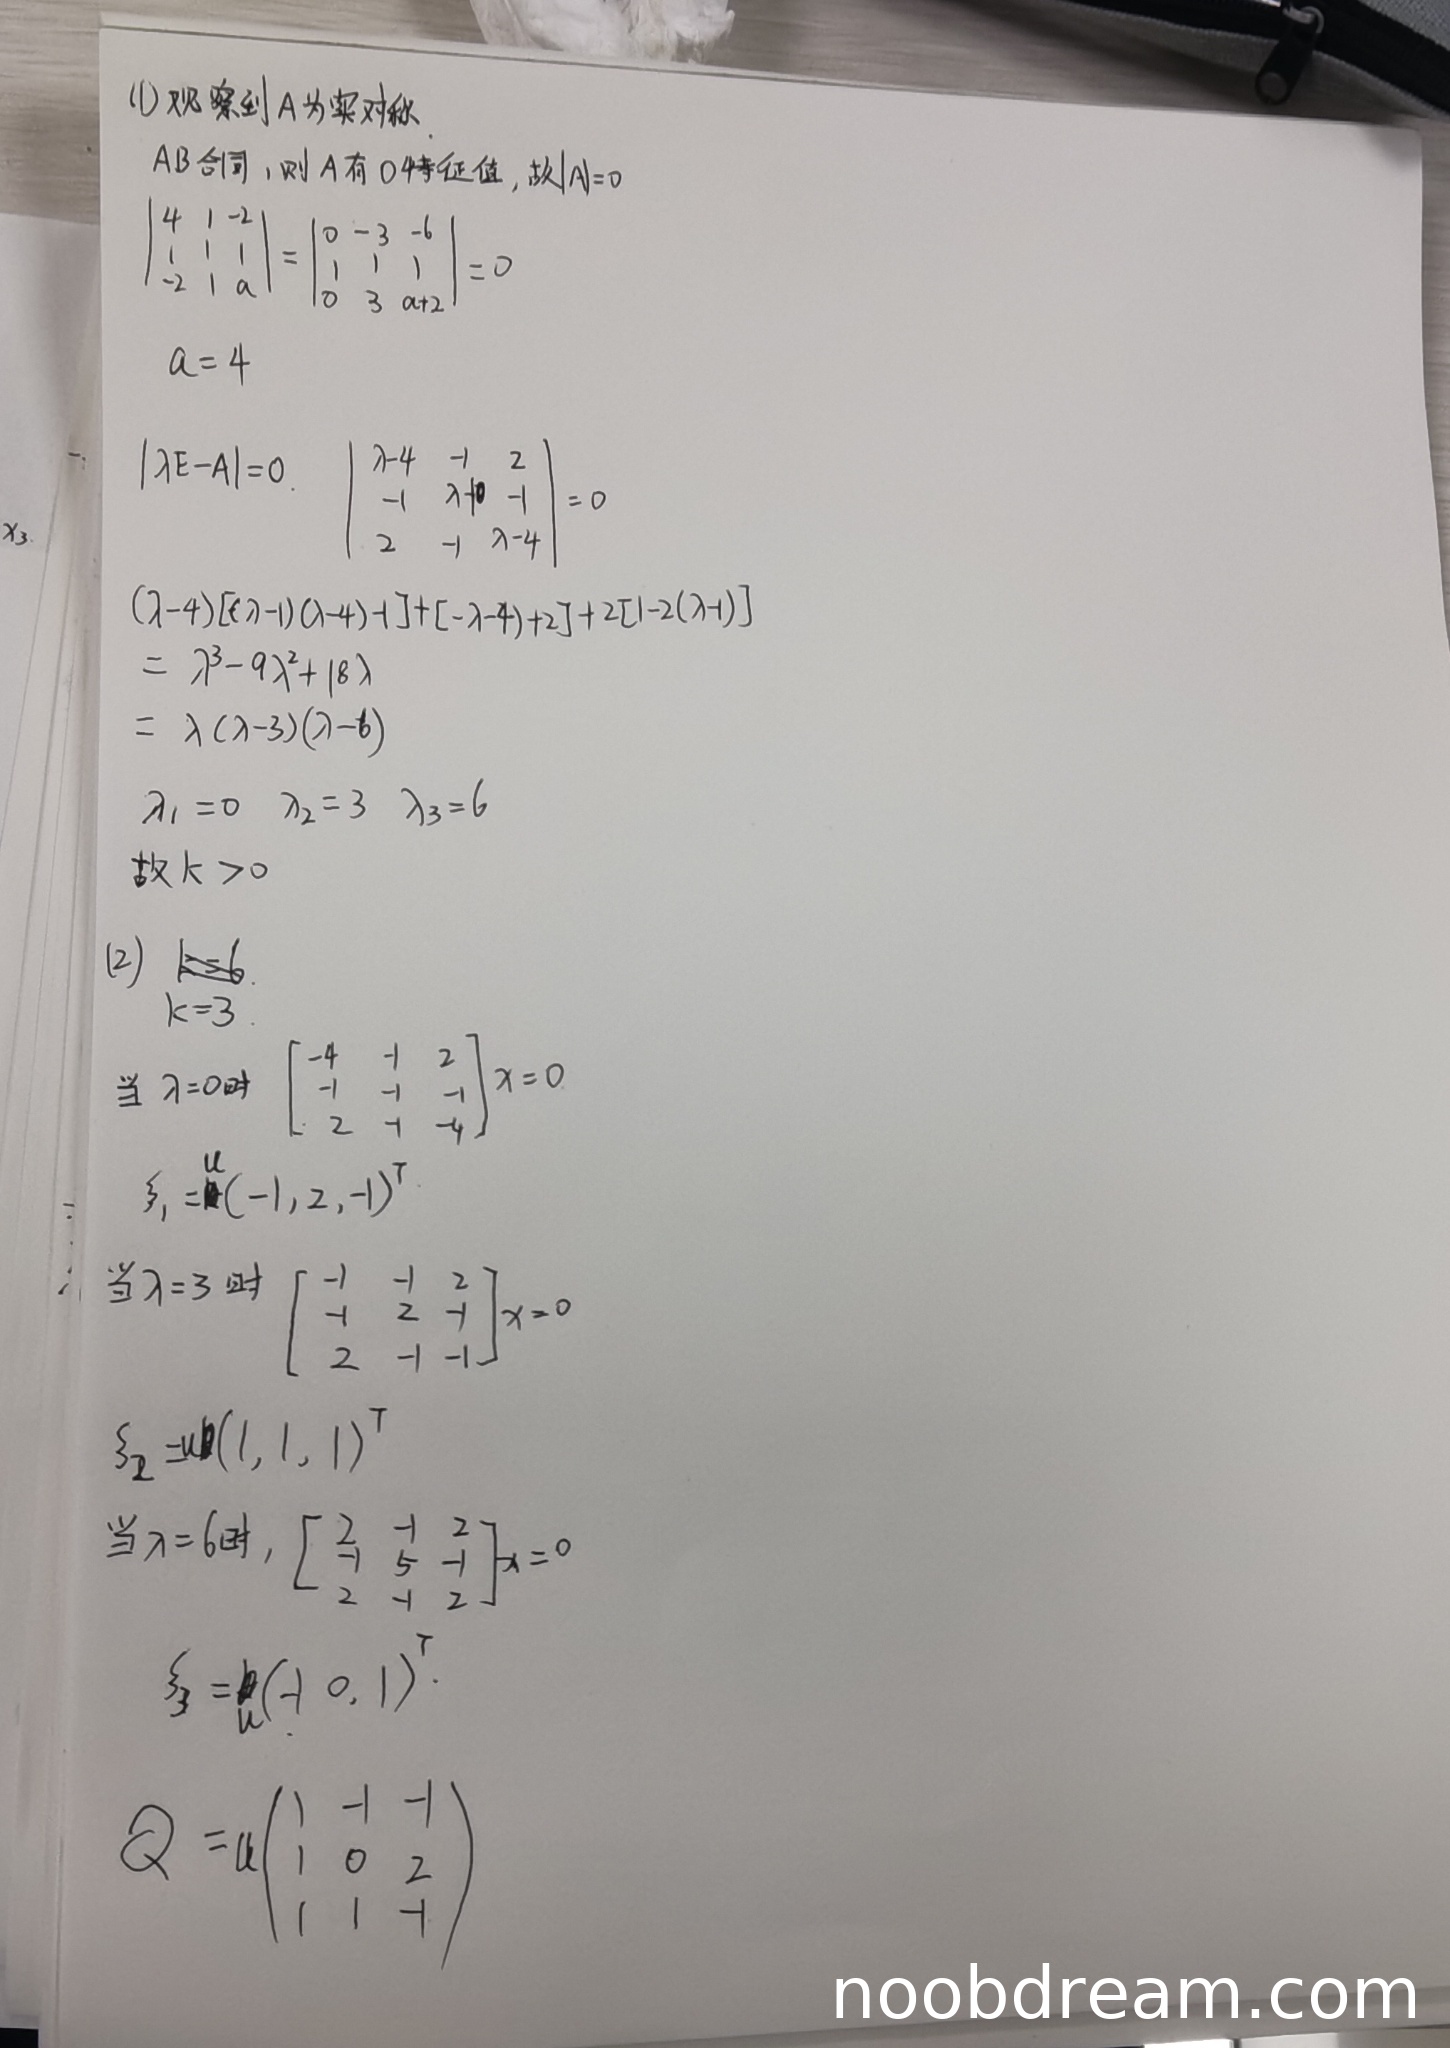 (1) 观察到A为实对称.
AB合同,则A有0特征值,故|A|=0
| 4 1 -2 | = | 0 -3 -6 | = 0
| 1 1 1 | | 1 1 1 |
| -2 1 a | | 0 3 a+2 |
a=4
|λE-A|=0. | λ-4 -1 2 |
| -1 λ-1 -1 | =0
| 2 -1 λ-4 |
(λ-4)[(λ-1)(λ-4)-1]+[-λ-4)+2]+2[1-2(λ-1)]
= λ³-9λ²+18λ
= λ(λ-3)(λ-6)
λ₁=0 λ₂=3 λ₃=6
故k>0
(2) k=6.
k=3.
当λ=0时 [ -4 -1 2 ] x=0
[ -1 -1 -1 ]
[ 2 -1 -4 ]
ξ₁=u(-1,2,-1)ᵀ.
当λ=3时 [ -1 -1 2 ] x=0
[ -1 2 -1 ]
[ 2 -1 -1 ]
ξ₂=u(1,1,1)ᵀ
当λ=6时, [ 2 -1 2 ] x=0
[ -1 5 -1 ]
[ 2 -1 2 ]
ξ₃=u(-1 0,1)ᵀ.
Q = u ( 1 -1 -1 )
( 1 0 2 )
( 1 1 -1 )
x₃.
noobdream.com